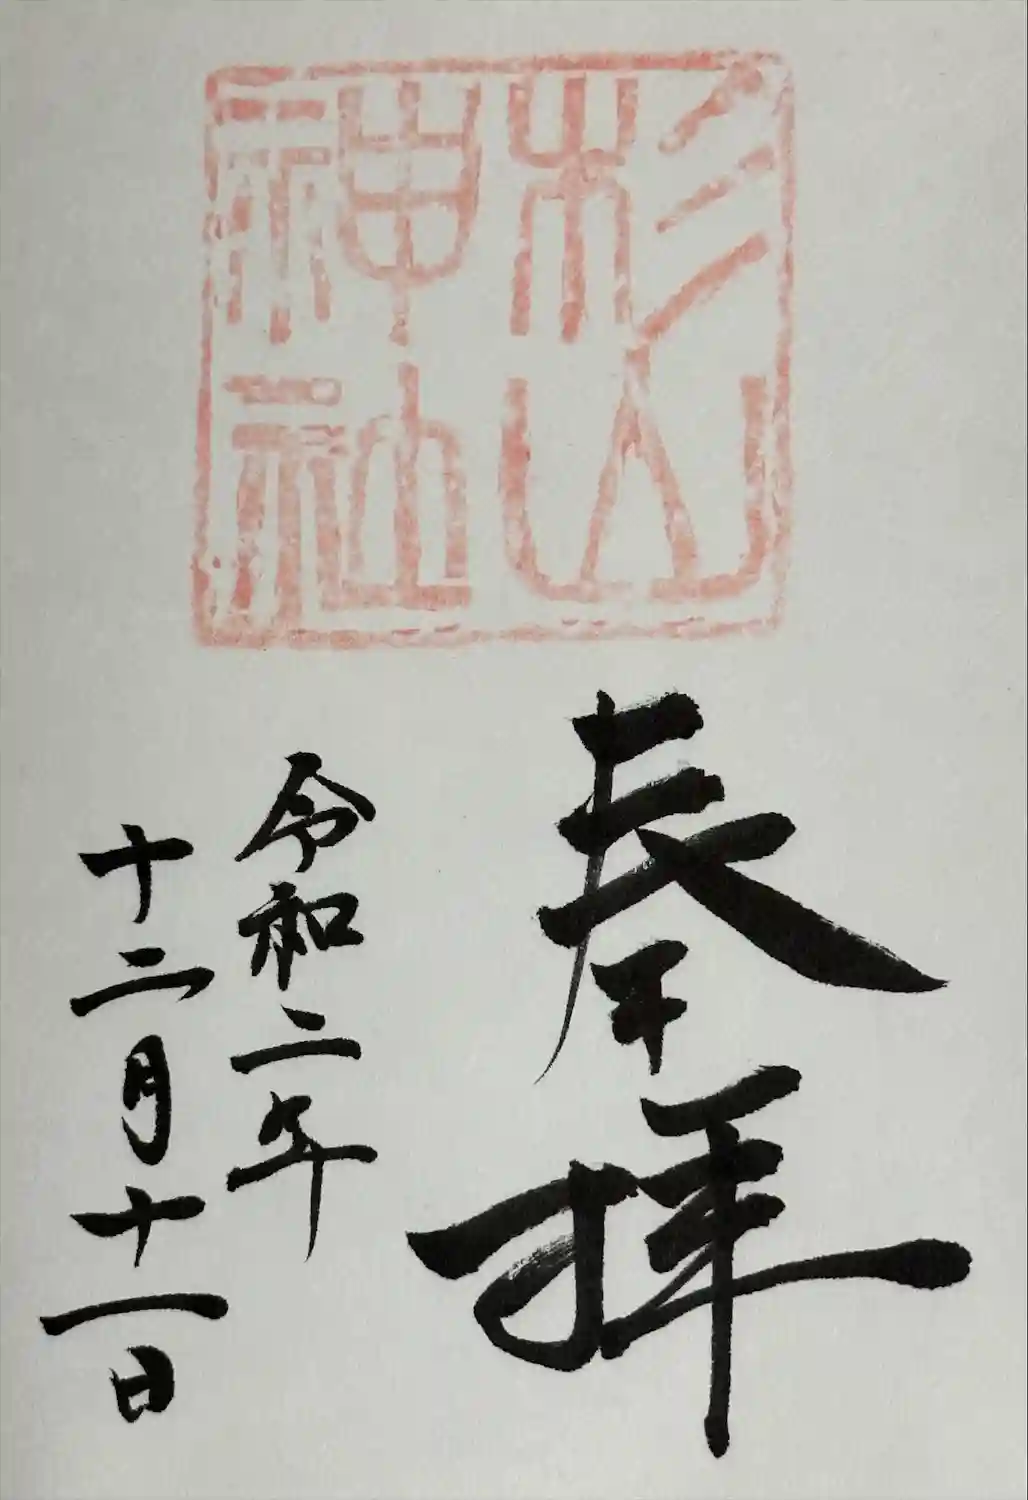 杉山
神社
奉拝
令和二年
十二月十一日